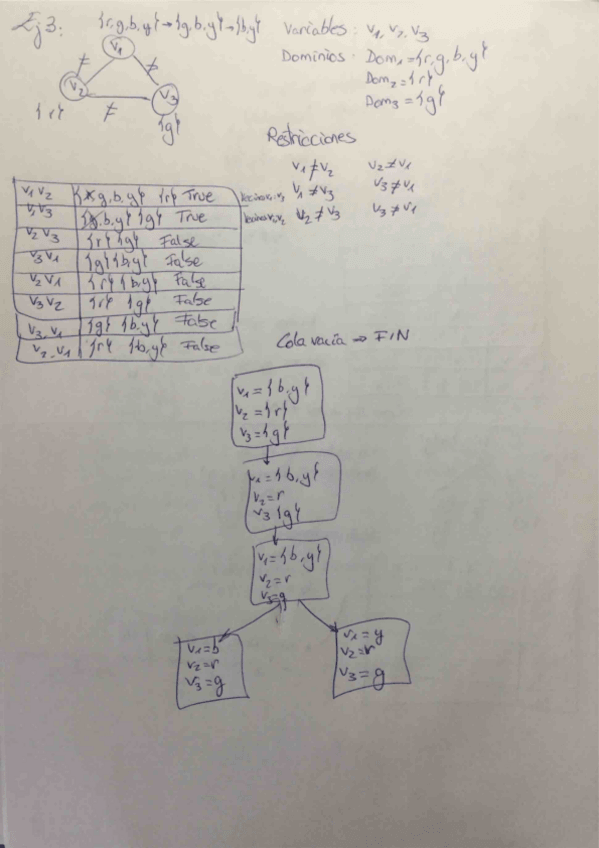 Ej 3:
{r,g,b,y} → {g,b,y} → {b,y}
V1
≠ ≠
V2 V3
≠
{r} {g}
Variables: V1, V2, V3
Dominios: Dom1 = {r,g,b,y}
Dom2 = {r}
Dom3 = {g}
Restricciones
V1 ≠ V2 V2 ≠ V1
V1 ≠ V3 V3 ≠ V1
V2 ≠ V3 V3 ≠ V1
V1 V2 {r,g,b,y} {r} True
V1 V3 {g,b,y} {g} True
V2 V3 {r} {g} False
V3 V1 {g} {b,y} False
V2 V1 {r} {b,y} False
V3 V2 {r} {g} False
V3, V1 {g} {b,y} False
V2, V1 {r} {b,y} False
Cola vacía ⇒ FIN
V1 = {b,y}
V2 = {r}
V3 = {g}
V1 = {b,y}
V2 = r
V3 {g}
V1 = {b,y}
V2 = r
V3 = g
V1 = b
V2 = r
V3 = g
V1 = y
V2 = r
V3 = g